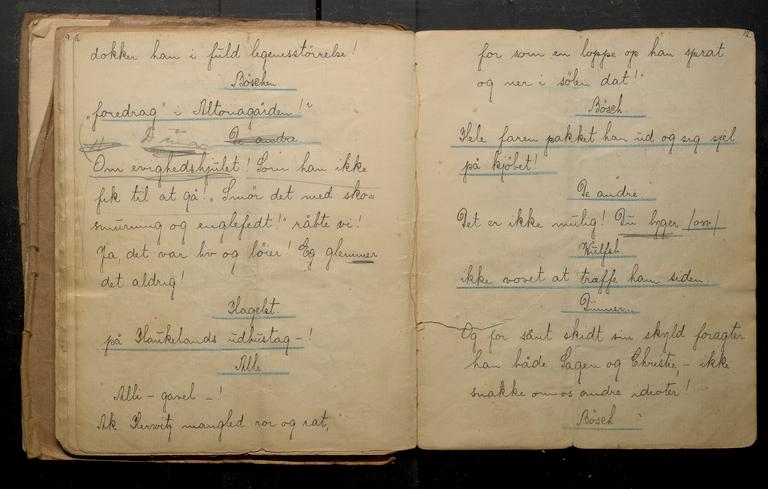 dokker han i fuld legemsstørrelse!
Böschen
"foredrag" i Altonagården!"
De andre
Om evighedshjulet! Som han ikke
fik til at gå! "Smør det med sko=
smurning og englefedt!" råbte vi!
Ja, det var liv og løier! Eg glemmer
det aldrig!
Hagelst.
på Haukelands udhustag -!
Alle
Alli - gavel -!
Ak Herwitz mangled ror og rat,
12.
for som en loppe op han sprat
og ner i sølen dat!"
Bösch
Hele faren pakket han ud og sig sjel
på kjøbet!
De andre
Det er ikke mulig! Du lyger
Wulfsb.
ikke vovet at træffe ham siden
Dünner..
Og for sånt skidt sin skyld foragter
han både Sagen og Christie, - ikke
snakke om os andre idioter!
Bösch